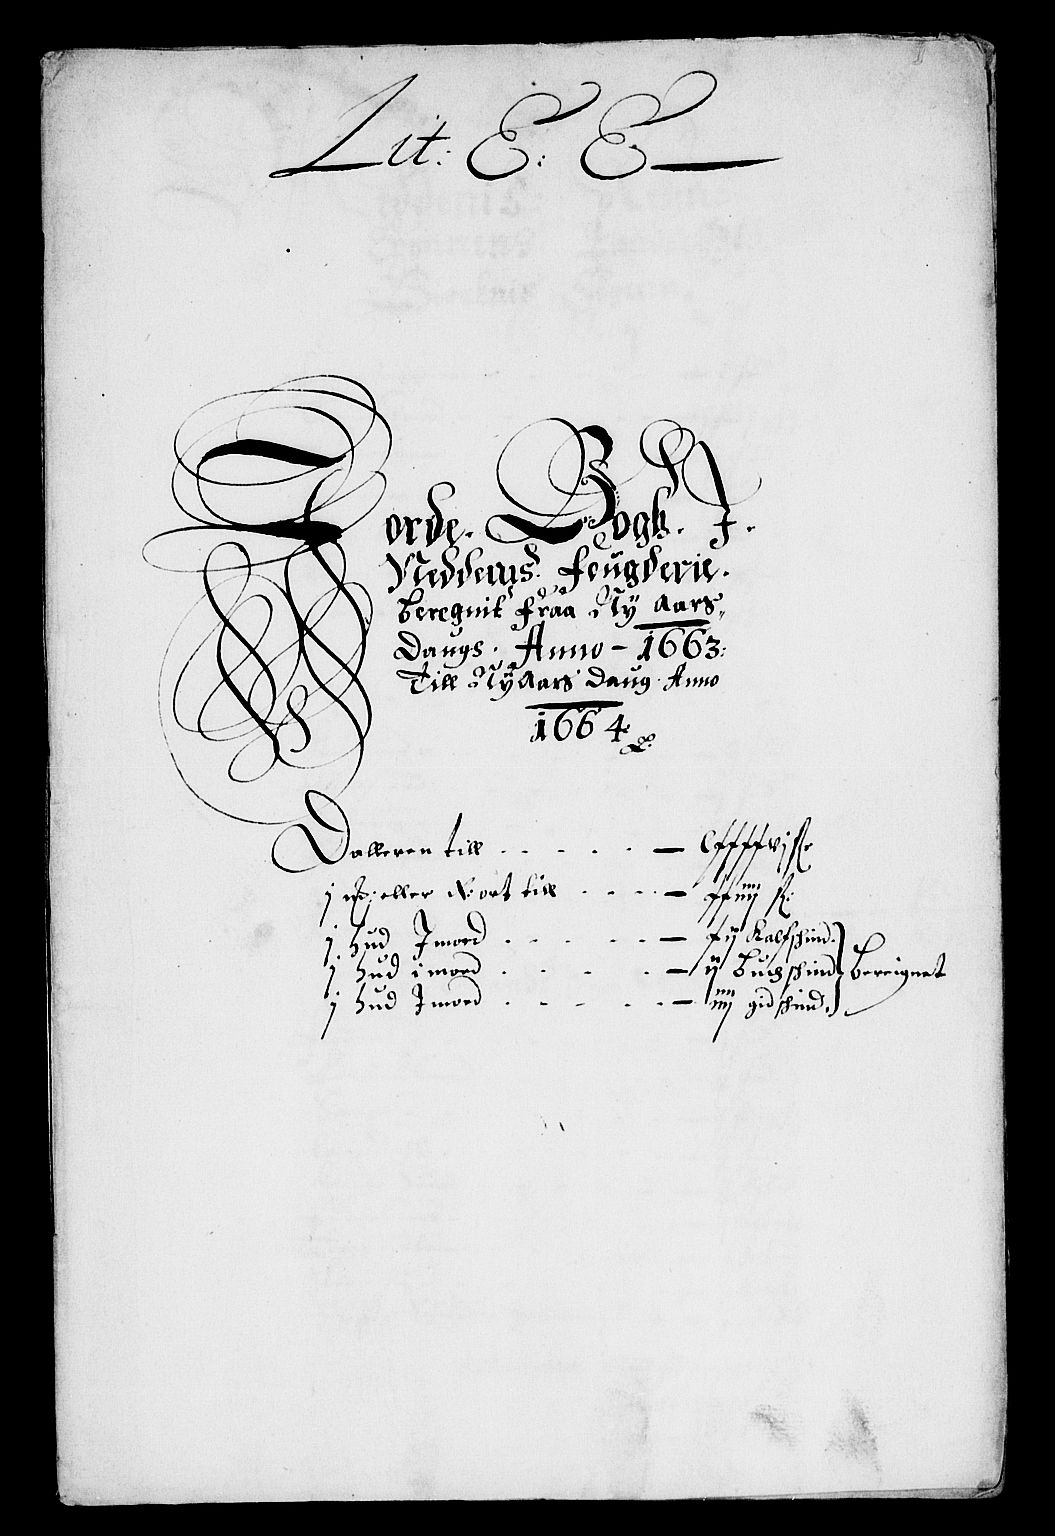 Lit: E: E
Jorde. Bogh. J.
Neddenes. feugderie.
beregnit fraa Ny Aars
daugs. Anno - 1663:
Till Ny Aars daug. Anno
1664
Dalleren till . . . . . — lxxxxvj sk
j eller ort till . . . . — xxiiij sk:
j hud Jmod . . . . . — xij Kalfschind.
j hud imod . . . . . — ij buchschind bereignet
j hud Jmod . . . . . — iiij gidschind.